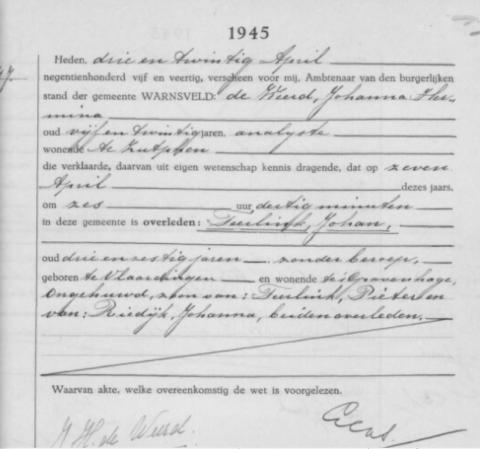 1945
Heden, drie en twintig April
negentienhonderd vijf en veertig, verscheen voor mij, Ambtenaar van den burgerlijken
stand der gemeente WARNSVELD: de Weerd, Johanna Her-
mina
oud vijf en twintig jaren, analyste
wonende te Zutphen
die verklaarde, daarvan uit eigen wetenschap kennis dragende, dat op zeven
April dezes jaars,
om zes uur dertig minuten
in deze gemeente is overleden: Teerlink, Johan,
oud drie en zestig jaren zonder beroep,
geboren te Vlaardingen en wonende te 'sGravenhage,
ongehuwd, zoon van: Teerlink, Pieter en
van: Riedijk, Johanna, beiden overleden.
Waarvan akte, welke overeenkomstig de wet is voorgelezen.
J. H. de Weerd.